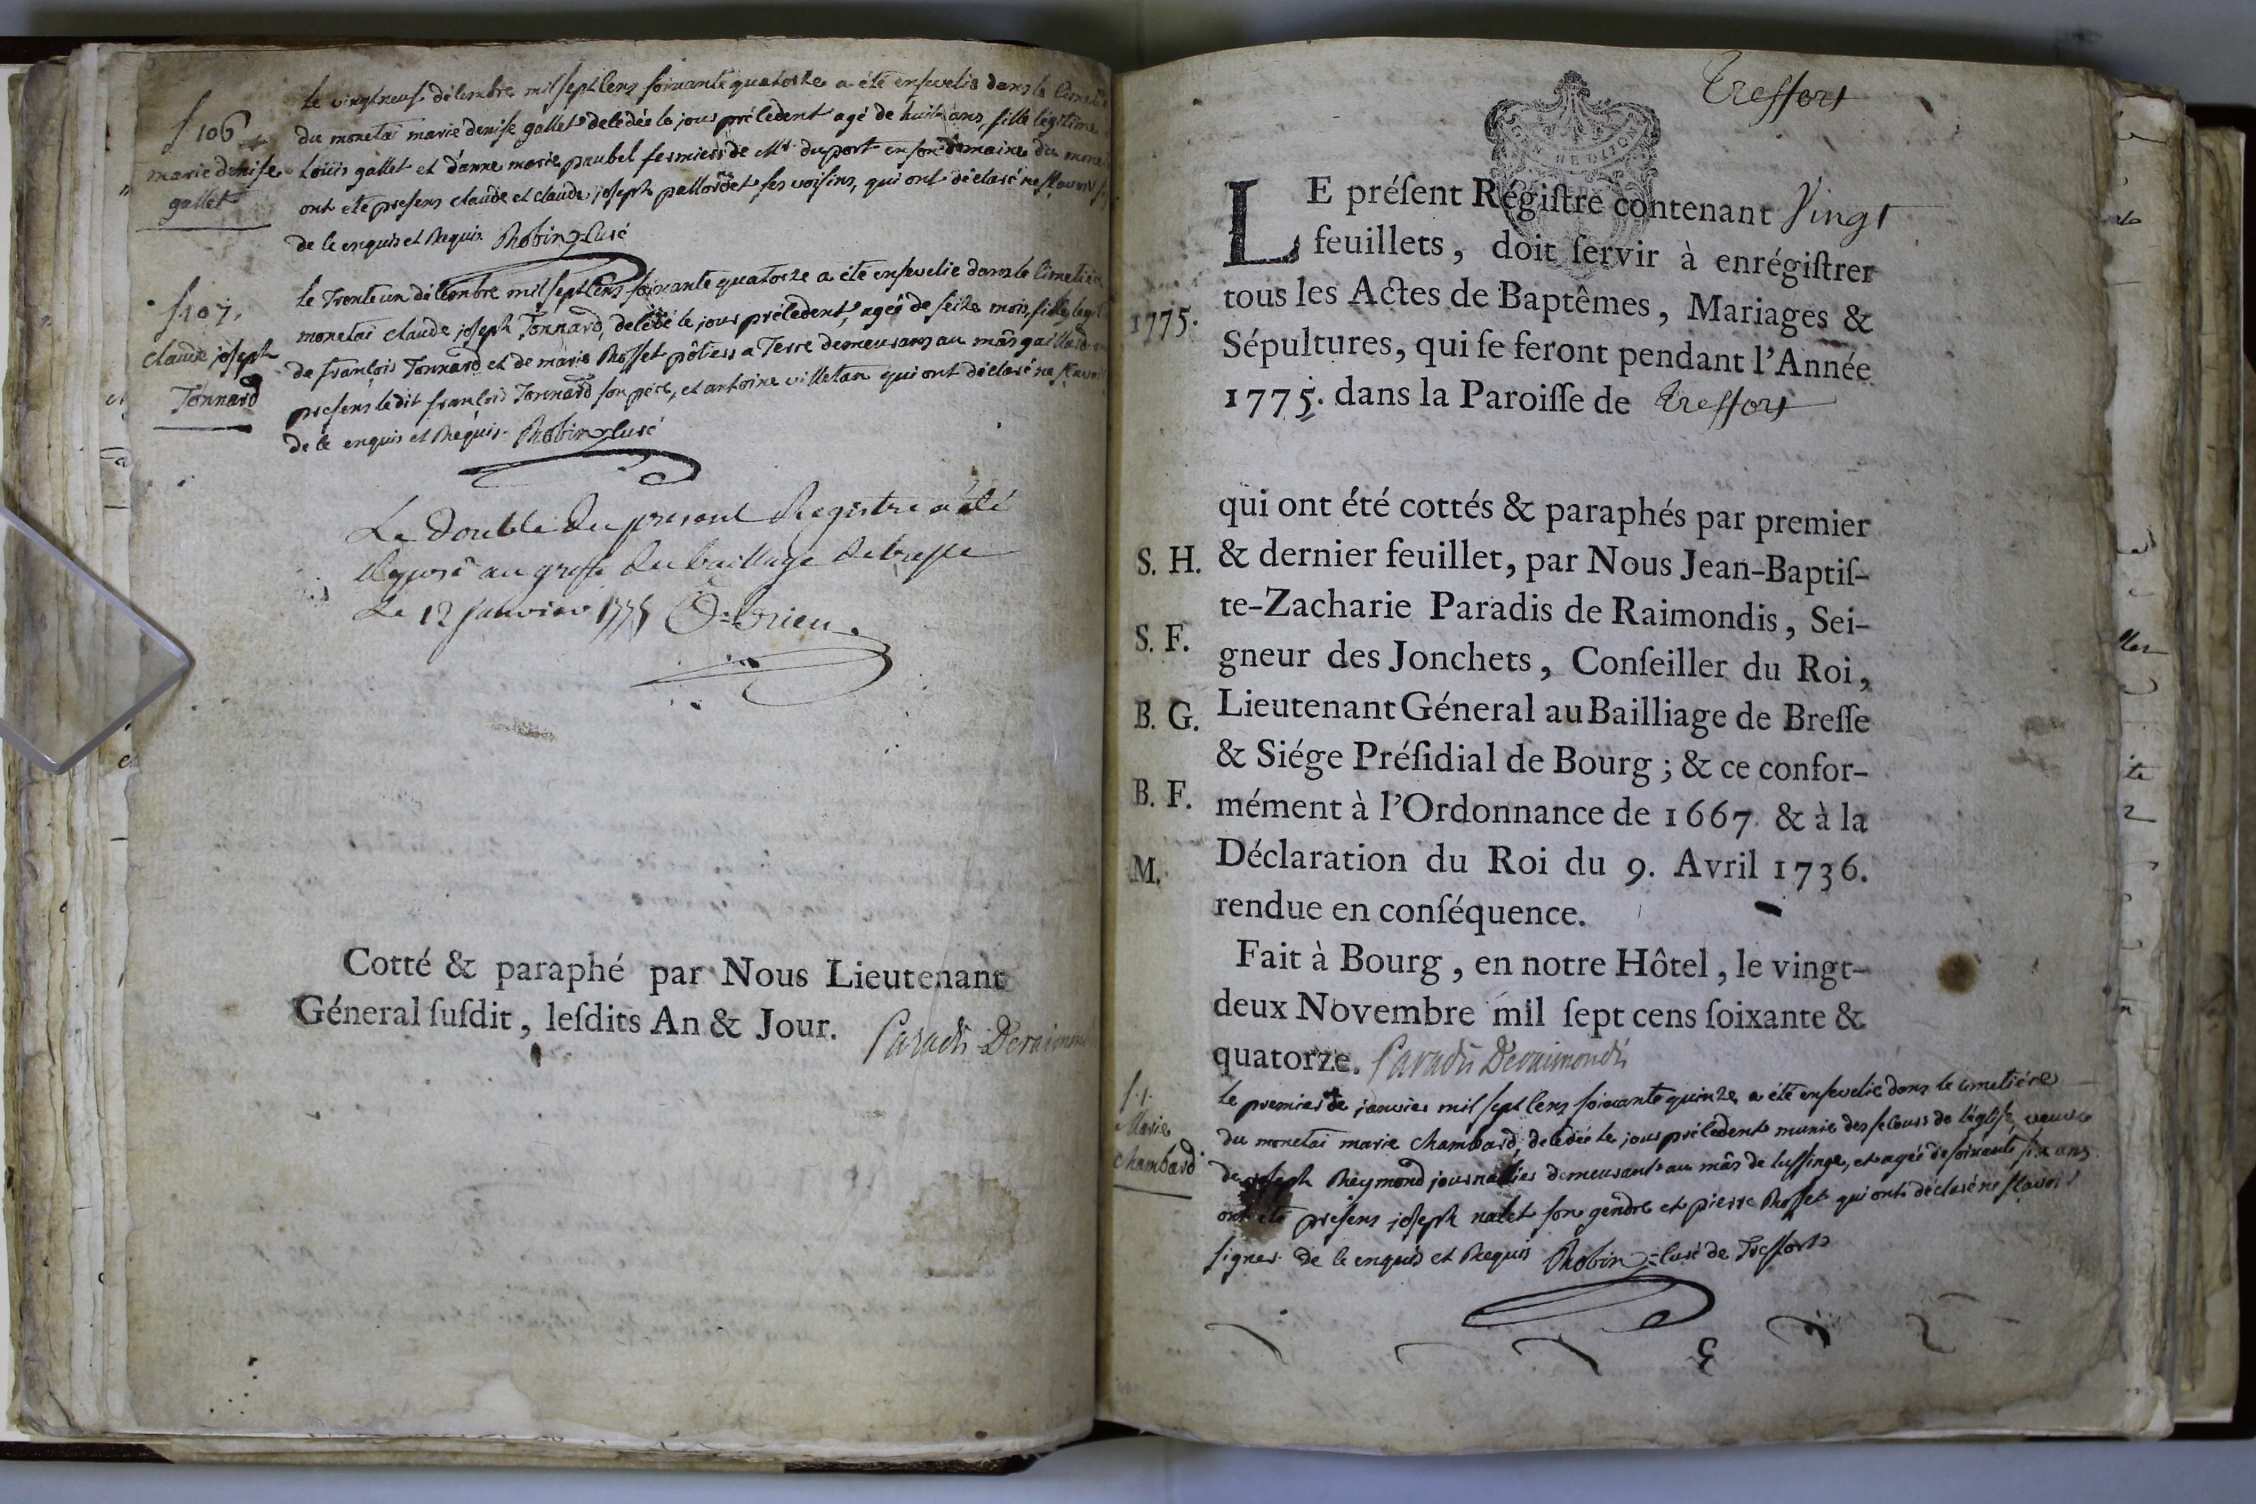 S 106
marie denise
gallet
le vingtneuf décembre mil sept cens soixante quatorze a été ensevelie dans le cimetiere
du monetai marie denise gallet decedée le jour précédent agé de huit ans, fille légitime
Loüis gallet et d'anne marie paubel fermiers de Mr. duport en son domaine du mone
ont été presens claude et claude joseph pallordet ses voisins, qui ont déclaré ne sçavoir
de ce enquis et Requis. Robin Curé
S 107.
claude joseph
Tonnard
le Trente un décembre mil sept cens soixante quatorze a été ensevelie dans le cimetiere
monetai claude joseph Tonnard, decédé le jour précédent, agée de seize mois, fille legit
de françois Tonnard et de marie Rosset pôtiers a Terre demeurans au mâs gaillard
presens ledit françois Tonnard son père, et antoine villetan qui ont déclaré ne sçavoir
de ce enquis et Requis. Robin Curé
Le Double du present Registre a été
déposé au greffe du bailliage de bresse
Le 12 janvier 1775
Cotté & paraphé par Nous Lieutenant
Géneral susdit, lesdits An & Jour. Paradis Deraimon
Treffort
LE préſent Régiſtre contenant Vingt
feuillets, doit ſervir à enrégiſtrer
tous les Actes de Baptêmes, Mariages &
1775.
Sépultures, qui ſe feront pendant l'Année
1775. dans la Paroiſſe de Treffort
qui ont été cottés & paraphés par premier
S. H.
& dernier feuillet, par Nous Jean-Baptiſ-
te-Zacharie Paradis de Raimondis, Sei-
S. F.
gneur des Jonchets, Conſeiller du Roi,
B. G.
Lieutenant Géneral au Bailliage de Breſſe
& Siége Préſidial de Bourg ; & ce confor-
B. F.
mément à l'Ordonnance de 1667 & à la
M.
Déclaration du Roi du 9. Avril 1736.
rendue en conſéquence.
Fait à Bourg, en notre Hôtel, le vingt-
deux Novembre mil ſept cens ſoixante &
quatorze. Paradis Deraimondis
S 1.
Marie
Chambard
le premier de janvier mil sept cens soixante quinze a été ensevelie dans le cimetiére
du monetai marie Chambard, decedée le jour précédent munie des secours de l'église, veuve
de joseph Reymond journallier demeurante au mâs de lussinge, et agée de soixante six ans
ont été presens joseph nalet son gendre et pierre Rosset qui ont déclaré ne sçavoir
signer de ce enquis et Requis Robin Curé de Treffort